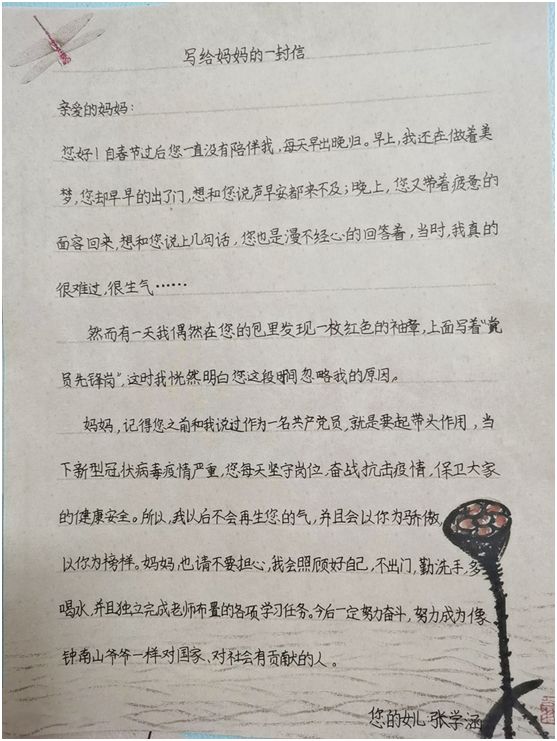 写给妈妈的一封信
亲爱的妈妈:
您好!自春节过后您一直没有陪伴我,每天早出晚归。早上,我还在做着美
梦,您却早早的出了门,想和您说声早安都来不及;晚上,您又带着疲惫的
面容回来,想和您说上几句话,您也是漫不经心的回答着,当时,我真的
很难过,很生气……
然而有一天我偶然在您的包里发现一枚红色的袖章,上面写着“党
员先锋岗”,这时我恍然明白您这段时间忽略我的原因。
妈妈,记得您之前和我说过作为一名共产党员,就是要起带头作用,当
下新型冠状病毒疫情严重,您每天坚守岗位,奋战抗击疫情,保卫大家
的健康安全。所以,我以后不会再生您的气,并且会以你为骄傲,
以你为榜样。妈妈,也请不要担心,我会照顾好自己,不出门,勤洗手,多
喝水,并且独立完成老师布置的各项学习任务。今后一定努力奋斗,努力成为像
钟南山爷爷一样对国家、对社会有贡献的人。
您的女儿 张学涵